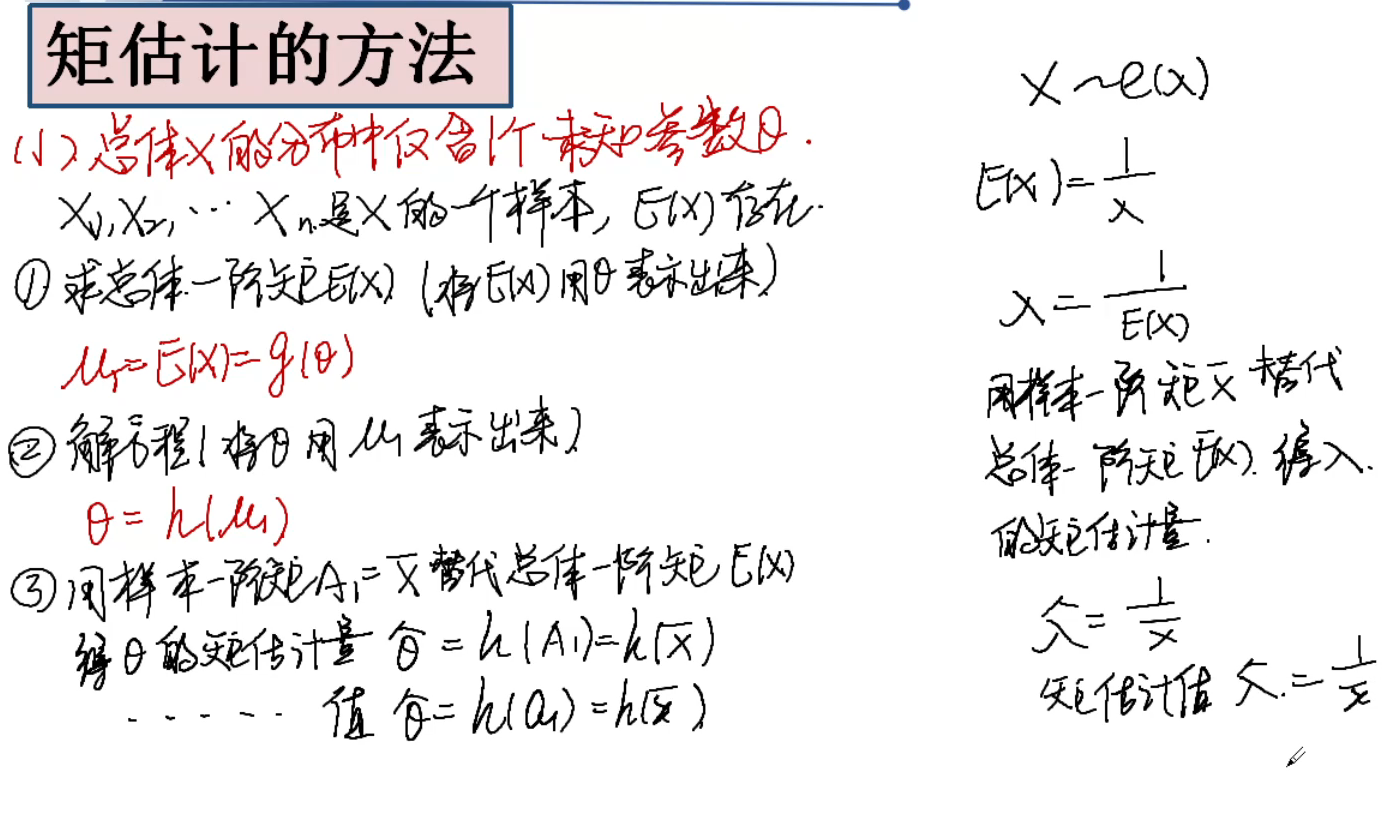 矩估计的方法
(1) 总体X的分布中仅含1个未知参数θ.
X₁,X₂,⋯ Xₙ是X的一个样本, E(X)存在.
① 求总体一阶矩E(X) (将E(X)用θ表示出来)
μ₁=E(X)=g(θ)
② 解方程(将θ用μ₁表示出来)
θ=h(μ₁)
③ 用样本一阶矩A₁=X̄替代总体一阶矩E(X)
得θ的矩估计量 θ̂=h(A₁)=h(X̄)
- - - - - - 值 θ̂=h(a₁)=h(x̄)
X~e(λ)
E(X)=1/λ
λ=1/E(X)
用样本一阶矩X̄替代
总体一阶矩E(X). 得λ.
的矩估计量.
λ̂=1/X̄
矩估计值 λ̂=1/x̄